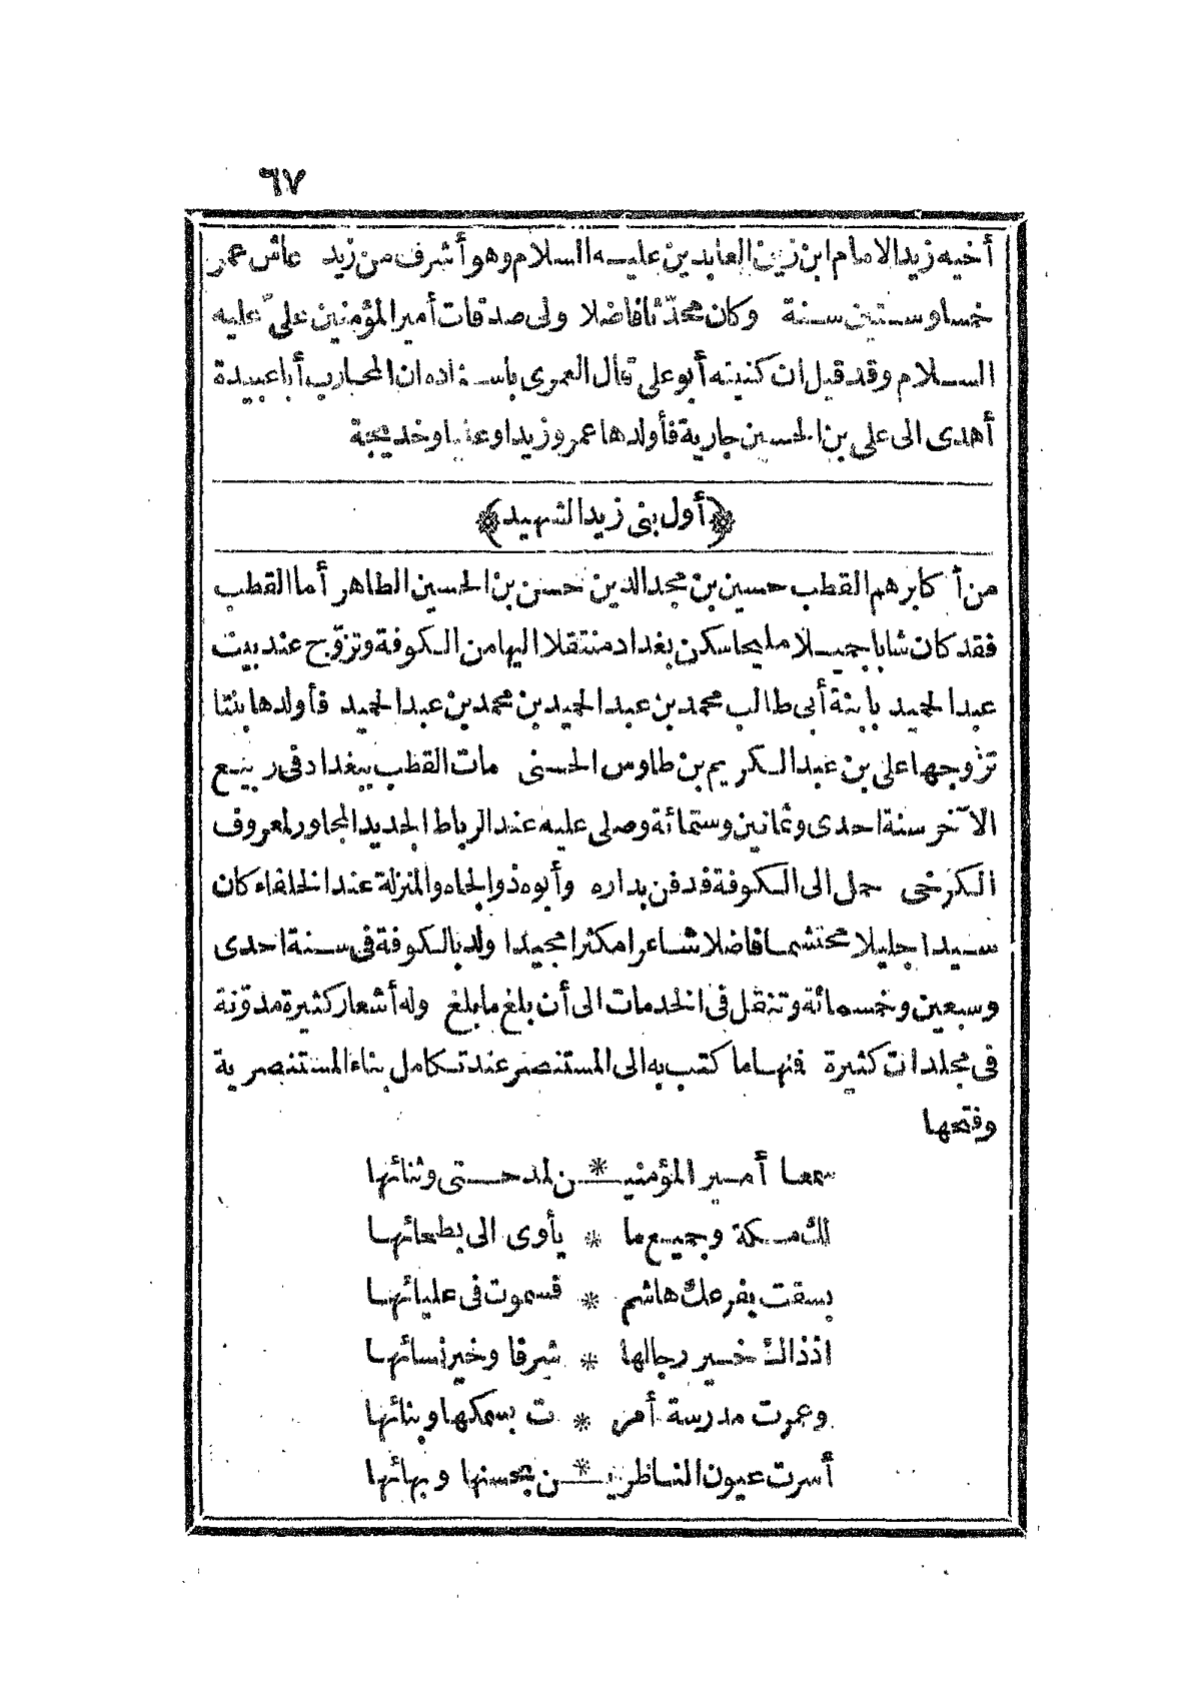 ٦٧
أخيه زيد الامام ابن زين العابدين عليه السلام وهو أشرف من زيد عاش عمر
خمسا وستين سنة وكان محدّثا فاضلا ولى صدقات أمير المؤمنين علىّ عليه
السلام وقد قيل ان كنيته أبو على قال العمرى باسناده ان المحارب أبا عبيدة
أهدى الى على بن الحسين جارية فأولدها عمر وزيدا وعليا وخديجة
﴿أول بنى زيد الشهيد﴾
من أكابرهم القطب حسين بن مجد الدين حسن بن الحسين الطاهر أما القطب
فقد كان شابا جميلا مليحا سكن بغداد منتقلا اليها من الكوفة وتزوّج عند بيت
عبد الحميد بابنة أبى طالب محمد بن عبد الحميد بن محمد بن عبد الحميد فأولدها بنتا
تزوجها على بن عبد الكريم بن طاوس الحسنى مات القطب ببغداد فى ربيع
الآخر سنة احدى وثمانين وستمائة وصلى عليه عند الرباط الجديد المجاور لمعروف
الكرخى حمل الى الكوفة فدفن بداره وأبوه ذو الجاه والمنزلة عند الخلفاء كان
سيدا جليلا محتشما فاضلا شاعرا مكثرا مجيدا ولد بالكوفة فى سنة احدى
وسبعين وخمسمائة وتنقل فى الخدمات الى أن بلغ ما بلغ وله أشعار كثيرة مدوّنة
فى مجلدات كثيرة فنها ما كتب به الى المستنصر عند تكامل بناء المستنصرية
وفتحها
سمعا أمير المؤمنيـ * ـن لمدحتى وثنائها
لك مكة وجميع ما * يأوى الى بطحائها
بسقت بفرعك هاشم * فسموت فى عليائها
اذ ذاك خير رجالها * شرفا وخير نسائها
وعمرت مدرسة أمر * ت بسمكها وبنائها
أسرت عيون الناظريـ * ـن بحسنها وبهائها